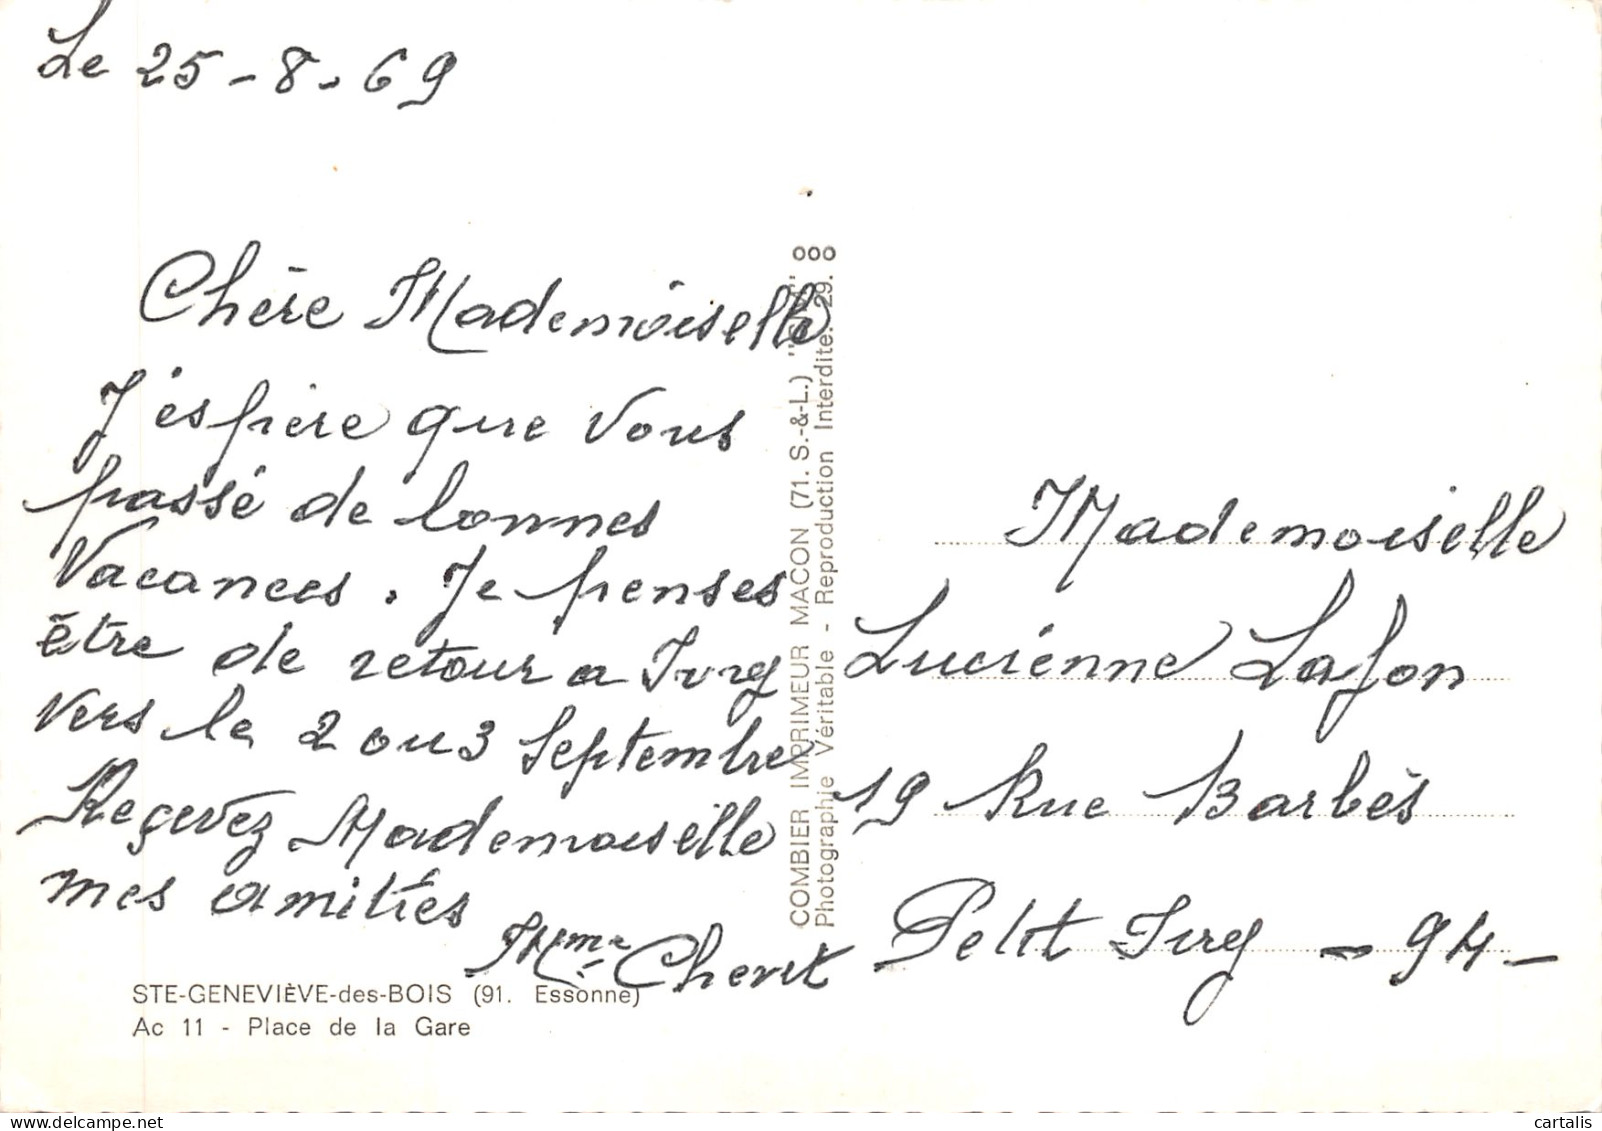 Le 25-8-69
Chère Mademoiselle
J'éspière que Vous
passé de bonnes
Vacances. Je penses
être de retour a Ivry
vers le 2 ou 3 Septembre
Reçevez Mademoiselle
mes amitiés
Mme
STE-GENEVIÈVE-des-BOIS (91. Essonne)
Ac 11 - Place de la Gare
COMBIER IMPRIMEUR MACON (71. S.-&-L.)
Photographie Véritable - Reproduction Interdite. 29.
Mademoiselle
Luciénne Lafon
19 Rue Barbès
Petit Ivry - 94 -
cartalis